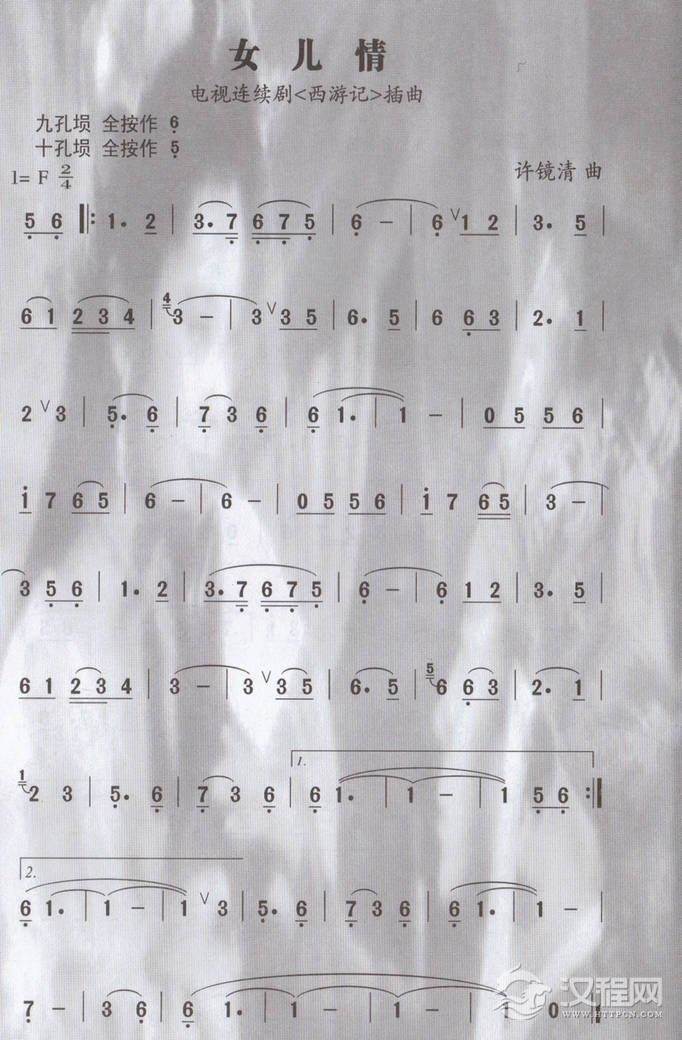 女儿情
电视连续剧<西游记>插曲
九孔埙 全按作 6̣
十孔埙 全按作 5̣
1= F 2/4
许镜清 曲
5̣ 6̣ ‖: 1. 2 | 3. 7̣ 6̣ 7̣ 5̣ | 6̣ − | 6̣ ∨ 1 2 | 3. 5 |
6 1 2 3 4 | 4 3 − | 3 ∨ 3 5 | 6. 5 | 6 6̣ 3 | 2. 1 |
2 ∨ 3 | 5̣. 6̣ | 7̣ 3 6̣ | 6̣ 1. | 1 − | 0 5 5 6 |
1̇ 7 6 5 | 6 − | 6 − | 0 5 5 6 | 1̇ 7 6 5 | 3 − |
3 5̣ 6̣ | 1. 2 | 3. 7̣ 6̣ 7̣ 5̣ | 6̣ − | 6̣ 1 2 | 3. 5 |
6 1 2 3 4 | 3 − | 3 ∨ 3 5 | 6. 5 | 5 6 6̣ 3 | 2. 1 |
1 2 3 | 5̣. 6̣ | 7̣ 3 6̣ | 1. 6̣ 1. | 1 − | 1 5̣ 6̣ :‖
2. 6̣ 1. | 1 − | 1 ∨ 3 | 5̣. 6̣ | 7̣ 3 6̣ | 6̣ 1. | 1 − |
7̣ − | 3 6̣ | 6̣ 1. | 1 − | 1 − | 1 0 ‖
汉程网
WWW.HTTPCN.COM